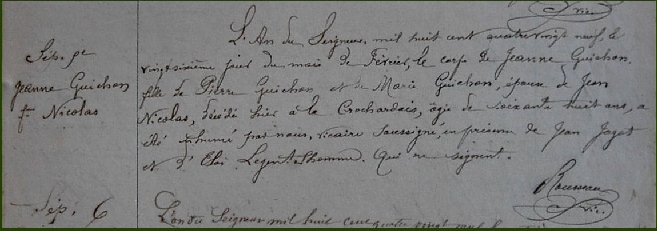 Vic.
Sép. 5e
Jeanne Guichon
f. Nicolas
L'An du Seigneur, mil huit cent quatre vingt neuf, le
vingt sixième jour du mois de Février, le corps de Jeanne Guichon,
fille de Pierre Guichon et de Marie Guichon, épouse de Jean
Nicolas, décédé hier à la Crochardais, agée de soixante huit ans, a
été inhumé par nous, vicaire soussigné, en présence de Jean
et d'Eloi Legentilhomme. Qui ne signent.
Vic.
Sép. 6
L'an du Seigneur mil huit cent quatre vingt neuf le